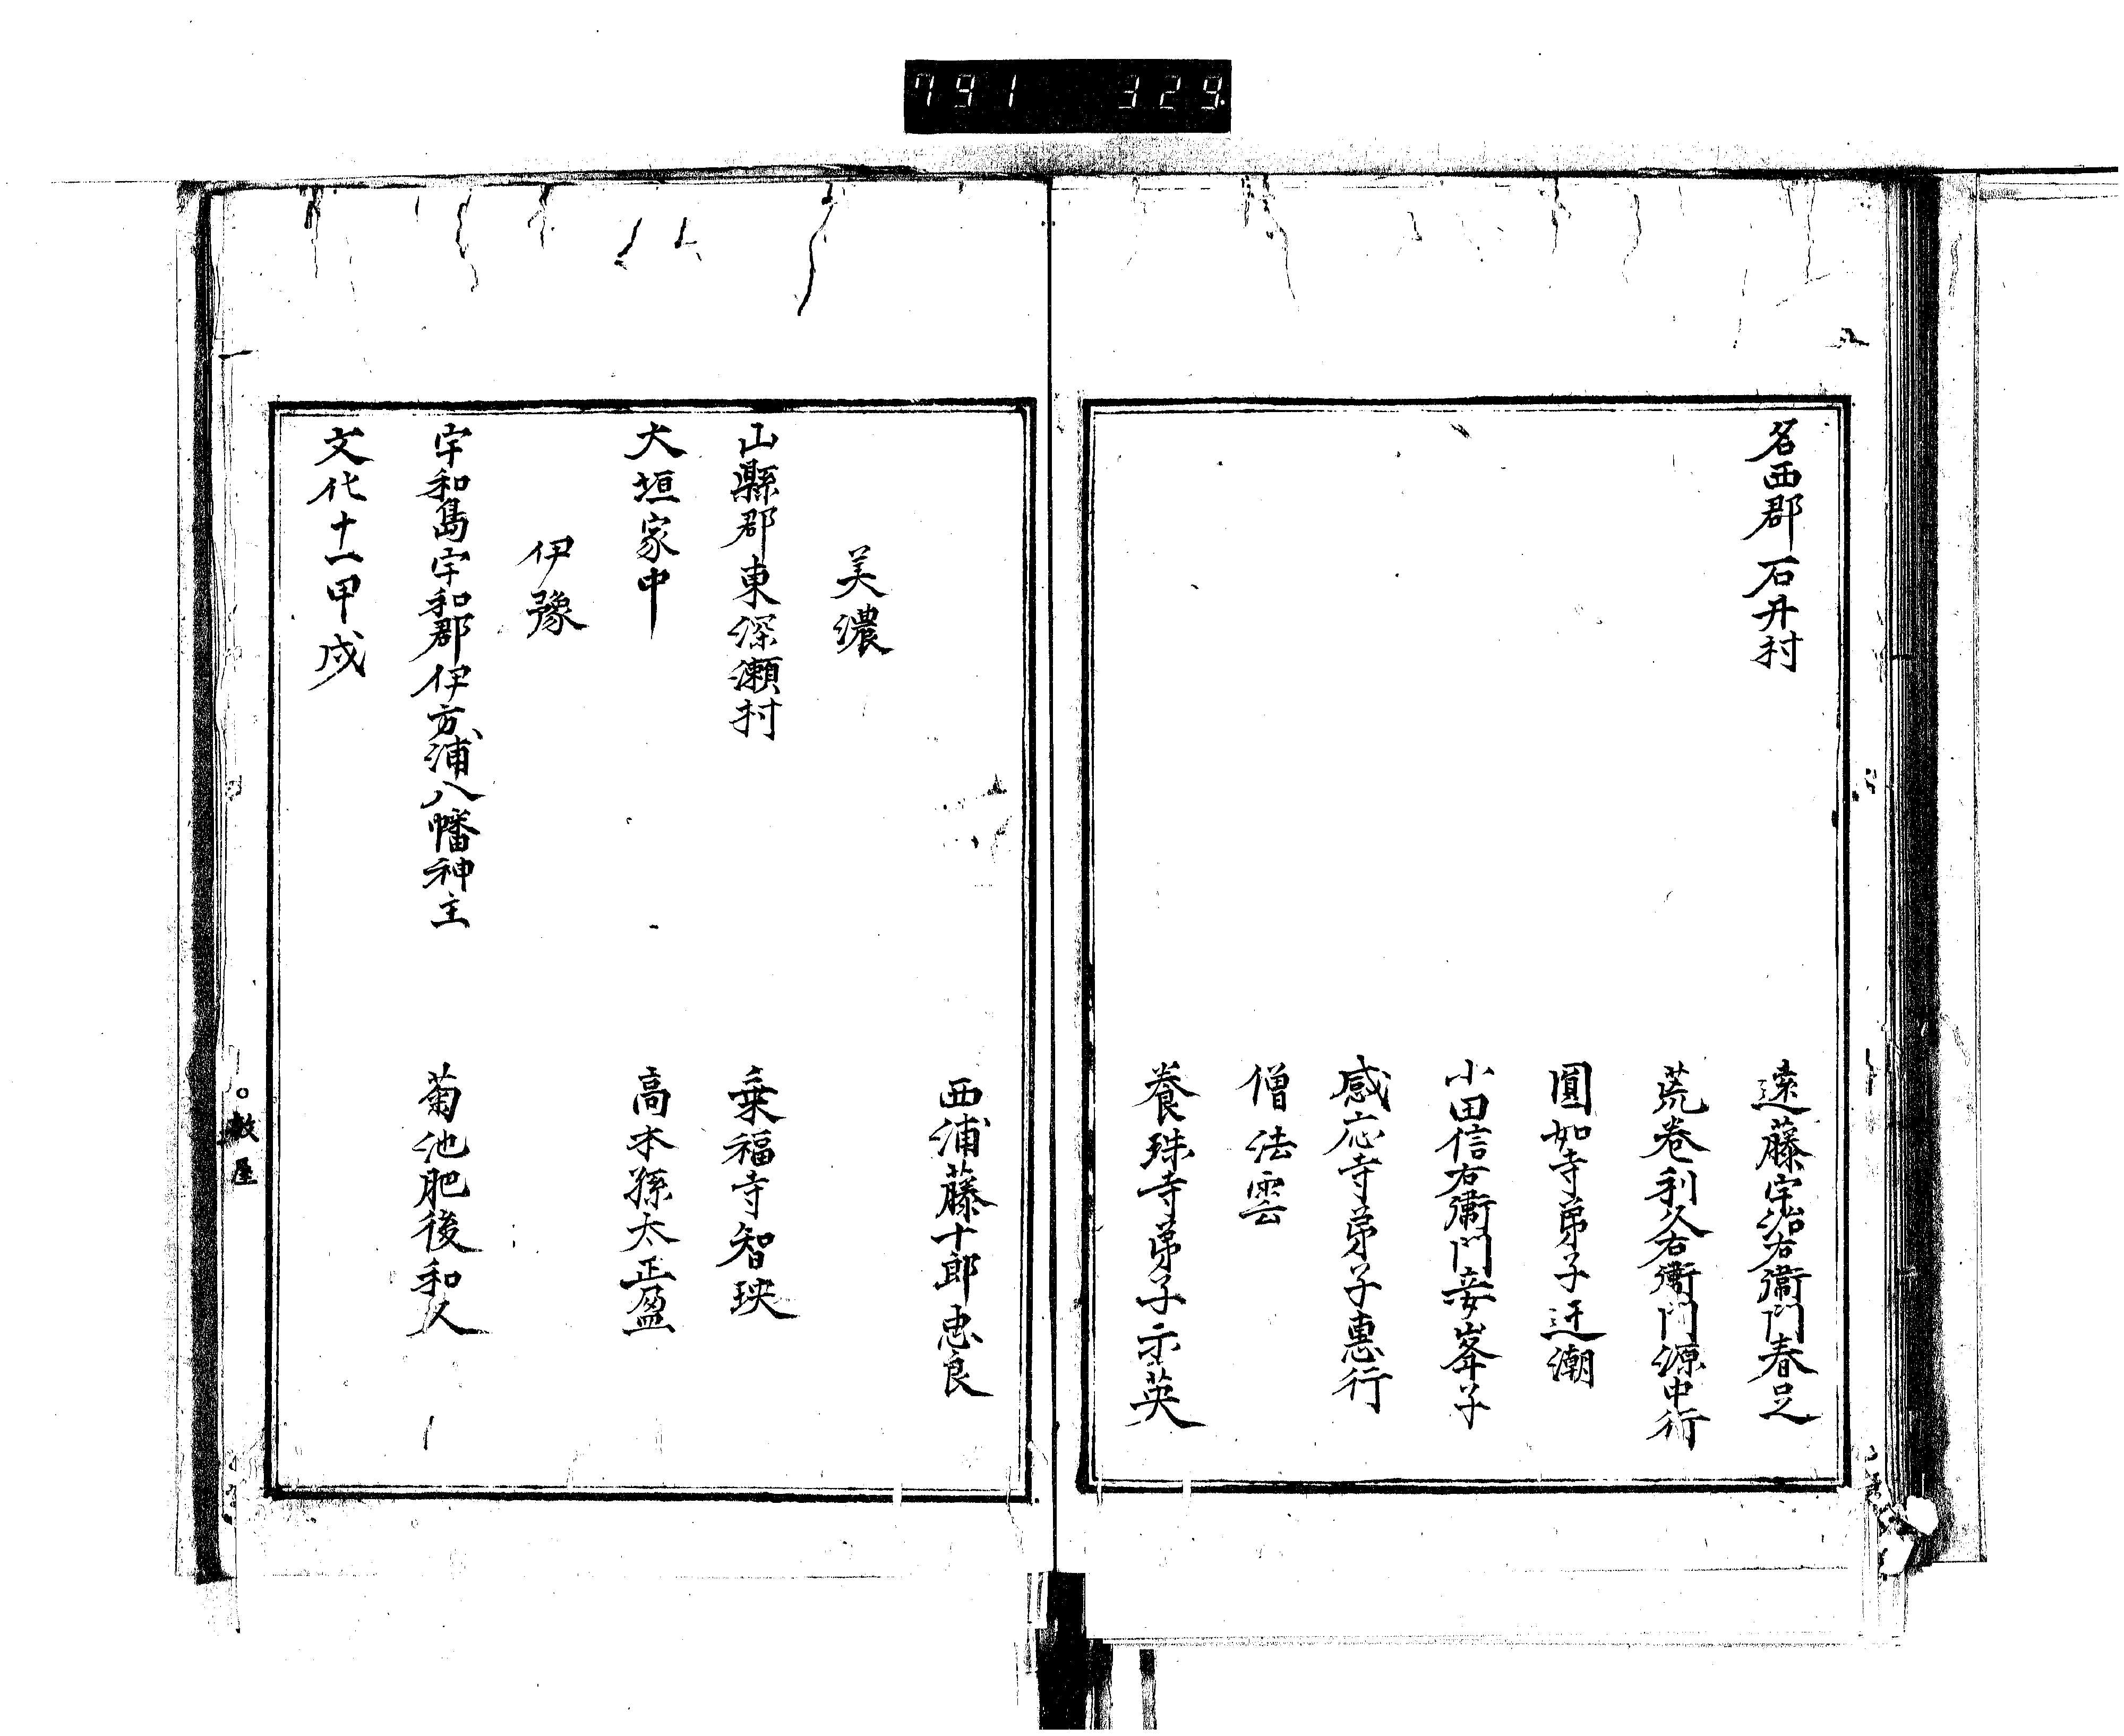 791 329
名西郡石井村 遠藤宇治右衞門春足
荒巻利久右衞門源中行
圓如寺弟子迂潮
小田信右衞門妾峯子
感応寺弟子惠行
僧法雲
養珠寺弟子示英
西浦藤十郎忠良
美濃
山縣郡東深瀬村 乗福寺智玞
大垣家中 高木孫太正盈
伊豫
宇和島宇和郡伊方浦八幡神主 菊池肥後和久
文化十一甲戌